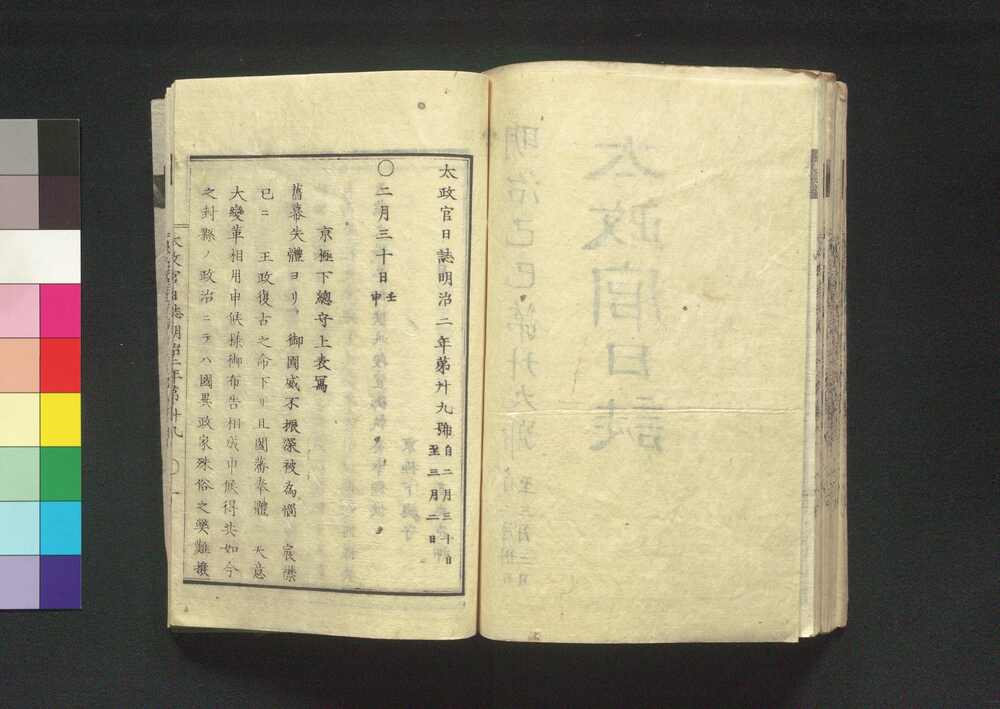 太政官日誌明治二年第廿九號 自二月三十日 至三月二日
〇二月三十日 壬申
京極下總守上表寫
舊幕失體ヨリ 御國威不振深被為惱 宸襟
已ニ 王政復古之命下リ且國藩奉體 天意
大變革相用申候様御布告相成申候得共如今
之封縣ノ政治ニテハ國異政家殊俗之弊難
太政官日誌明治二年第廿九